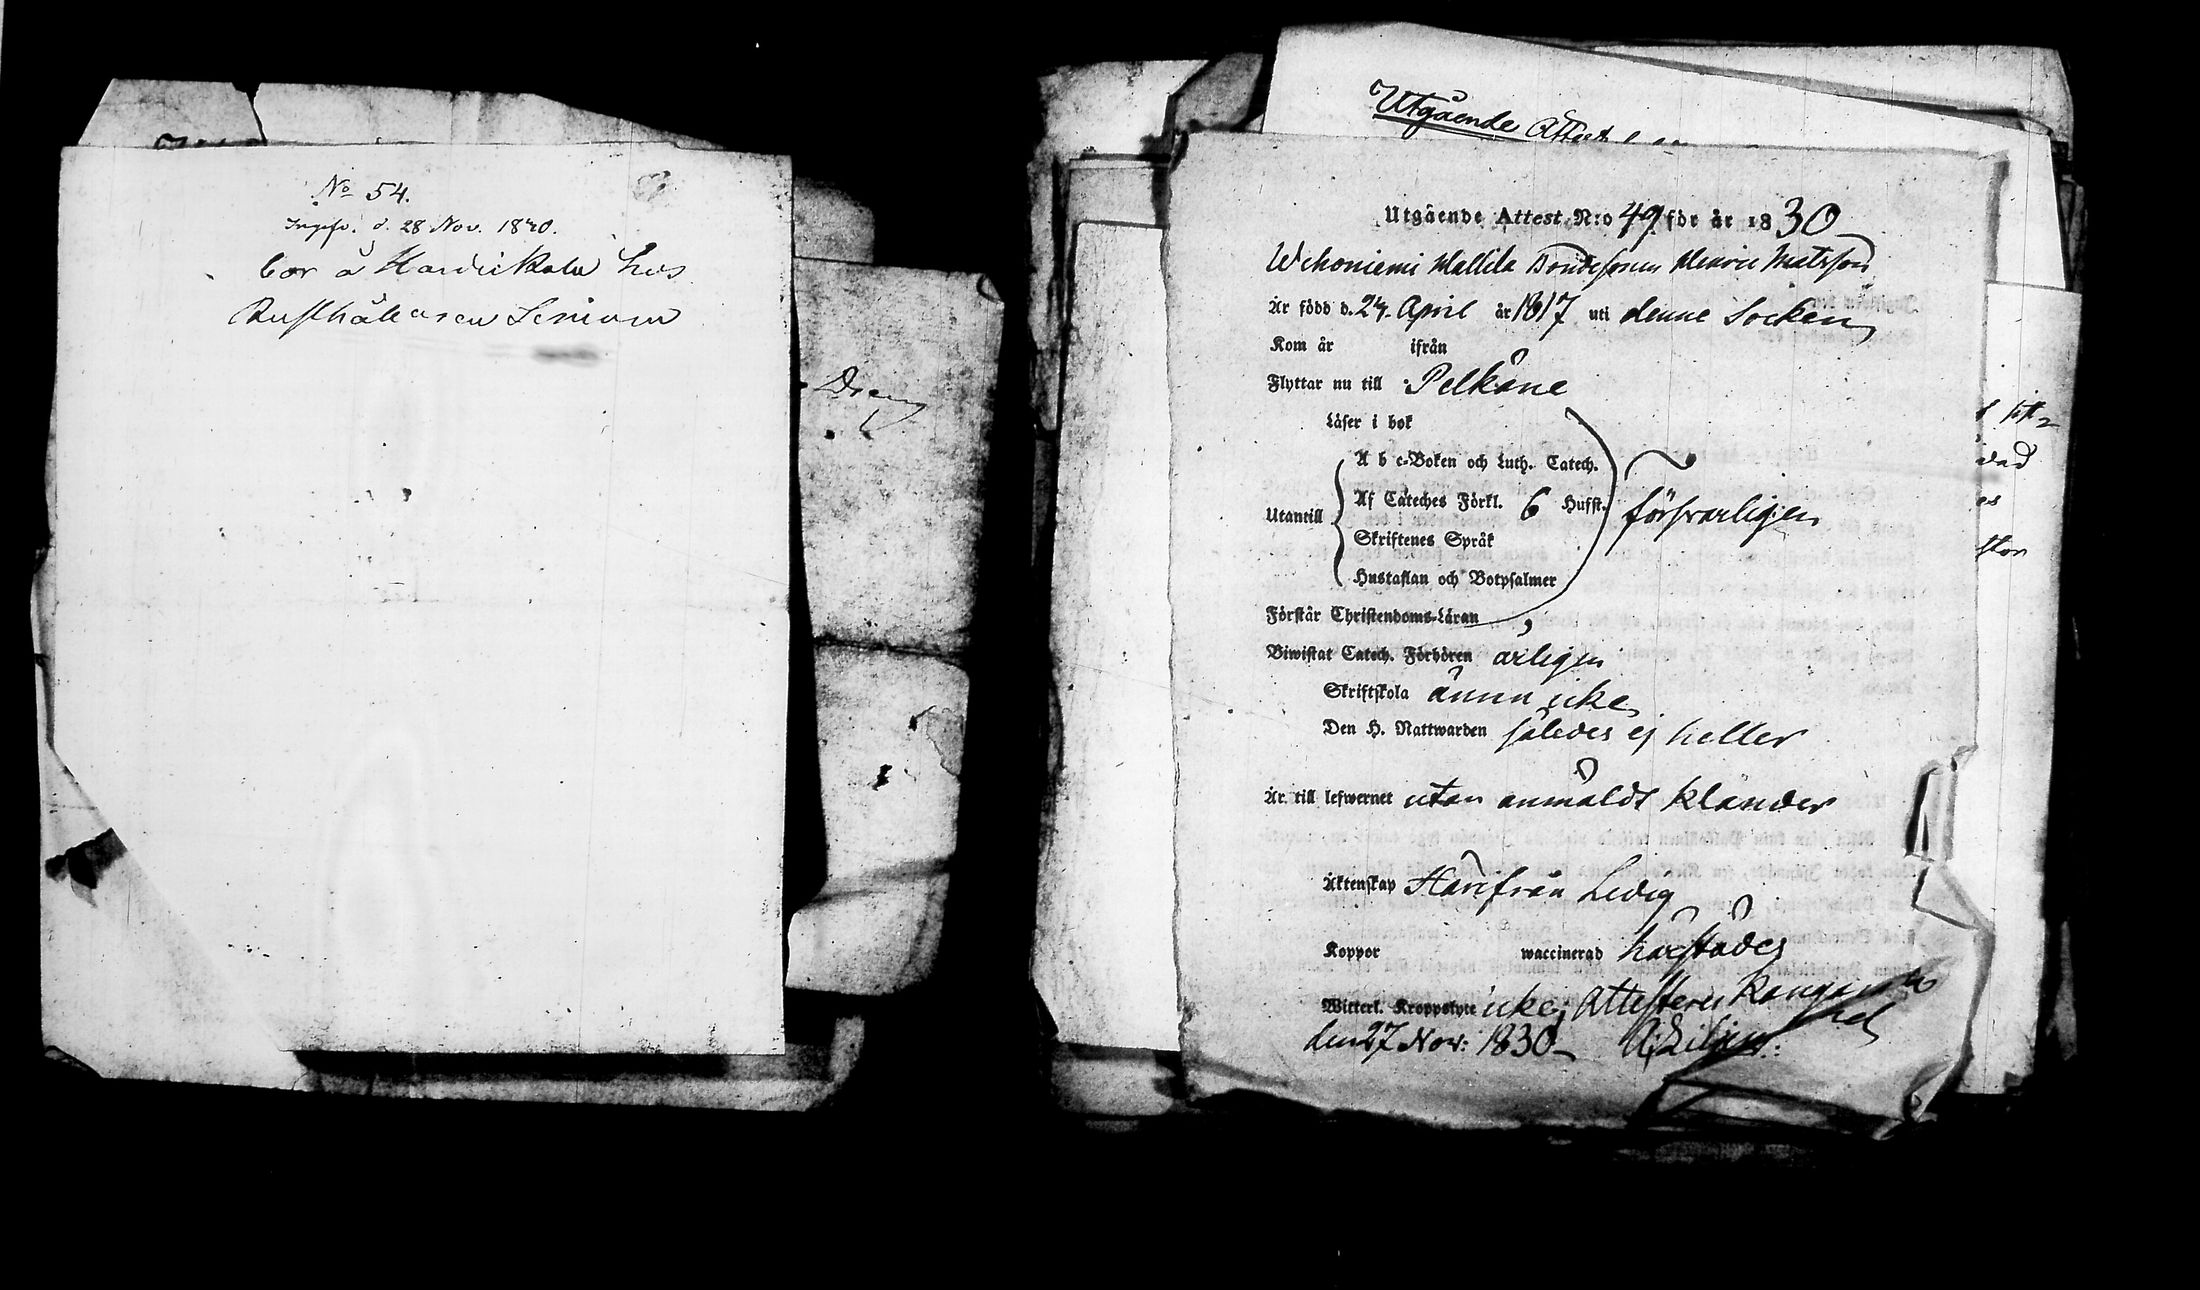 No 54.
d. 28 Nov. 1840.
bor å hos
Rusthållaren
Dreng
Utgående Attest
Utgående Attest N:o 49 för år 1830
Wehoniemi Mattila Bondesonen Henric Matsson
Är född d. 24 April år 1817 uti denne Socken
Kom år ifrån
Flyttar nu till Pelkäne
Läser i bok
A b c-Boken och Luth. Catech.
Utantill Af Cateches Förkl. 6 Hufst. försvarligen
Skriftenes Språk
Hustaflan och Botpsalmer
Förstår Christendoms-Läran
Biwistat Catech. Förhören årligen
Skriftskola ännu icke
Den H. Nattwarden således ej heller
Är till lefwernet utan anmäldt klander
Äktenskap Härifrån Ledig
Koppor waccinerad
Witterl. Kroppslyte icke; Attesterer Kangasala
den 27 Nov: 1830